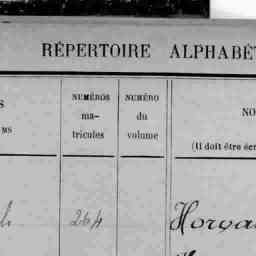 RÉPERTOIRE ALPHABÉT
S
MS
NUMÉROS
ma-
tricules
NUMÉRO
du
volume
NO
(Il doit être écr
264
Horva